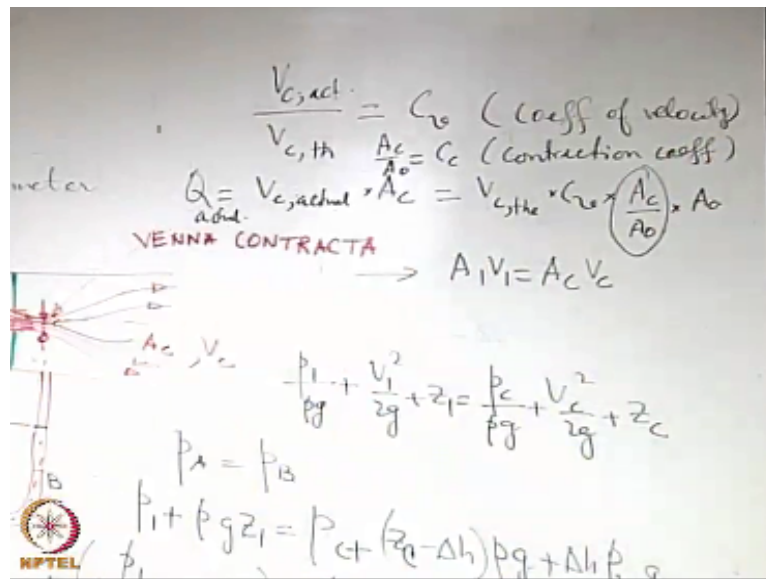 V_{c,act.} / V_{c,th} = C_v (Coeff of velocity)
A_c / A_o = C_c (Contraction coeff)
meter
Q_{actual} = V_{c,actual} * A_c = V_{c,the} * C_v * A_c / A_o * A_o
VENNA CONTRACTA
→ A_1 V_1 = A_c V_c
A_c , V_c
p_1/ρg + V_1^2/2g + z_1 = p_c/ρg + V_c^2/2g + z_c
p_A = p_B
B
p_1 + ρ g z_1 = p_c + (z_c - Δh) ρ g + Δh ρ g
NPTEL